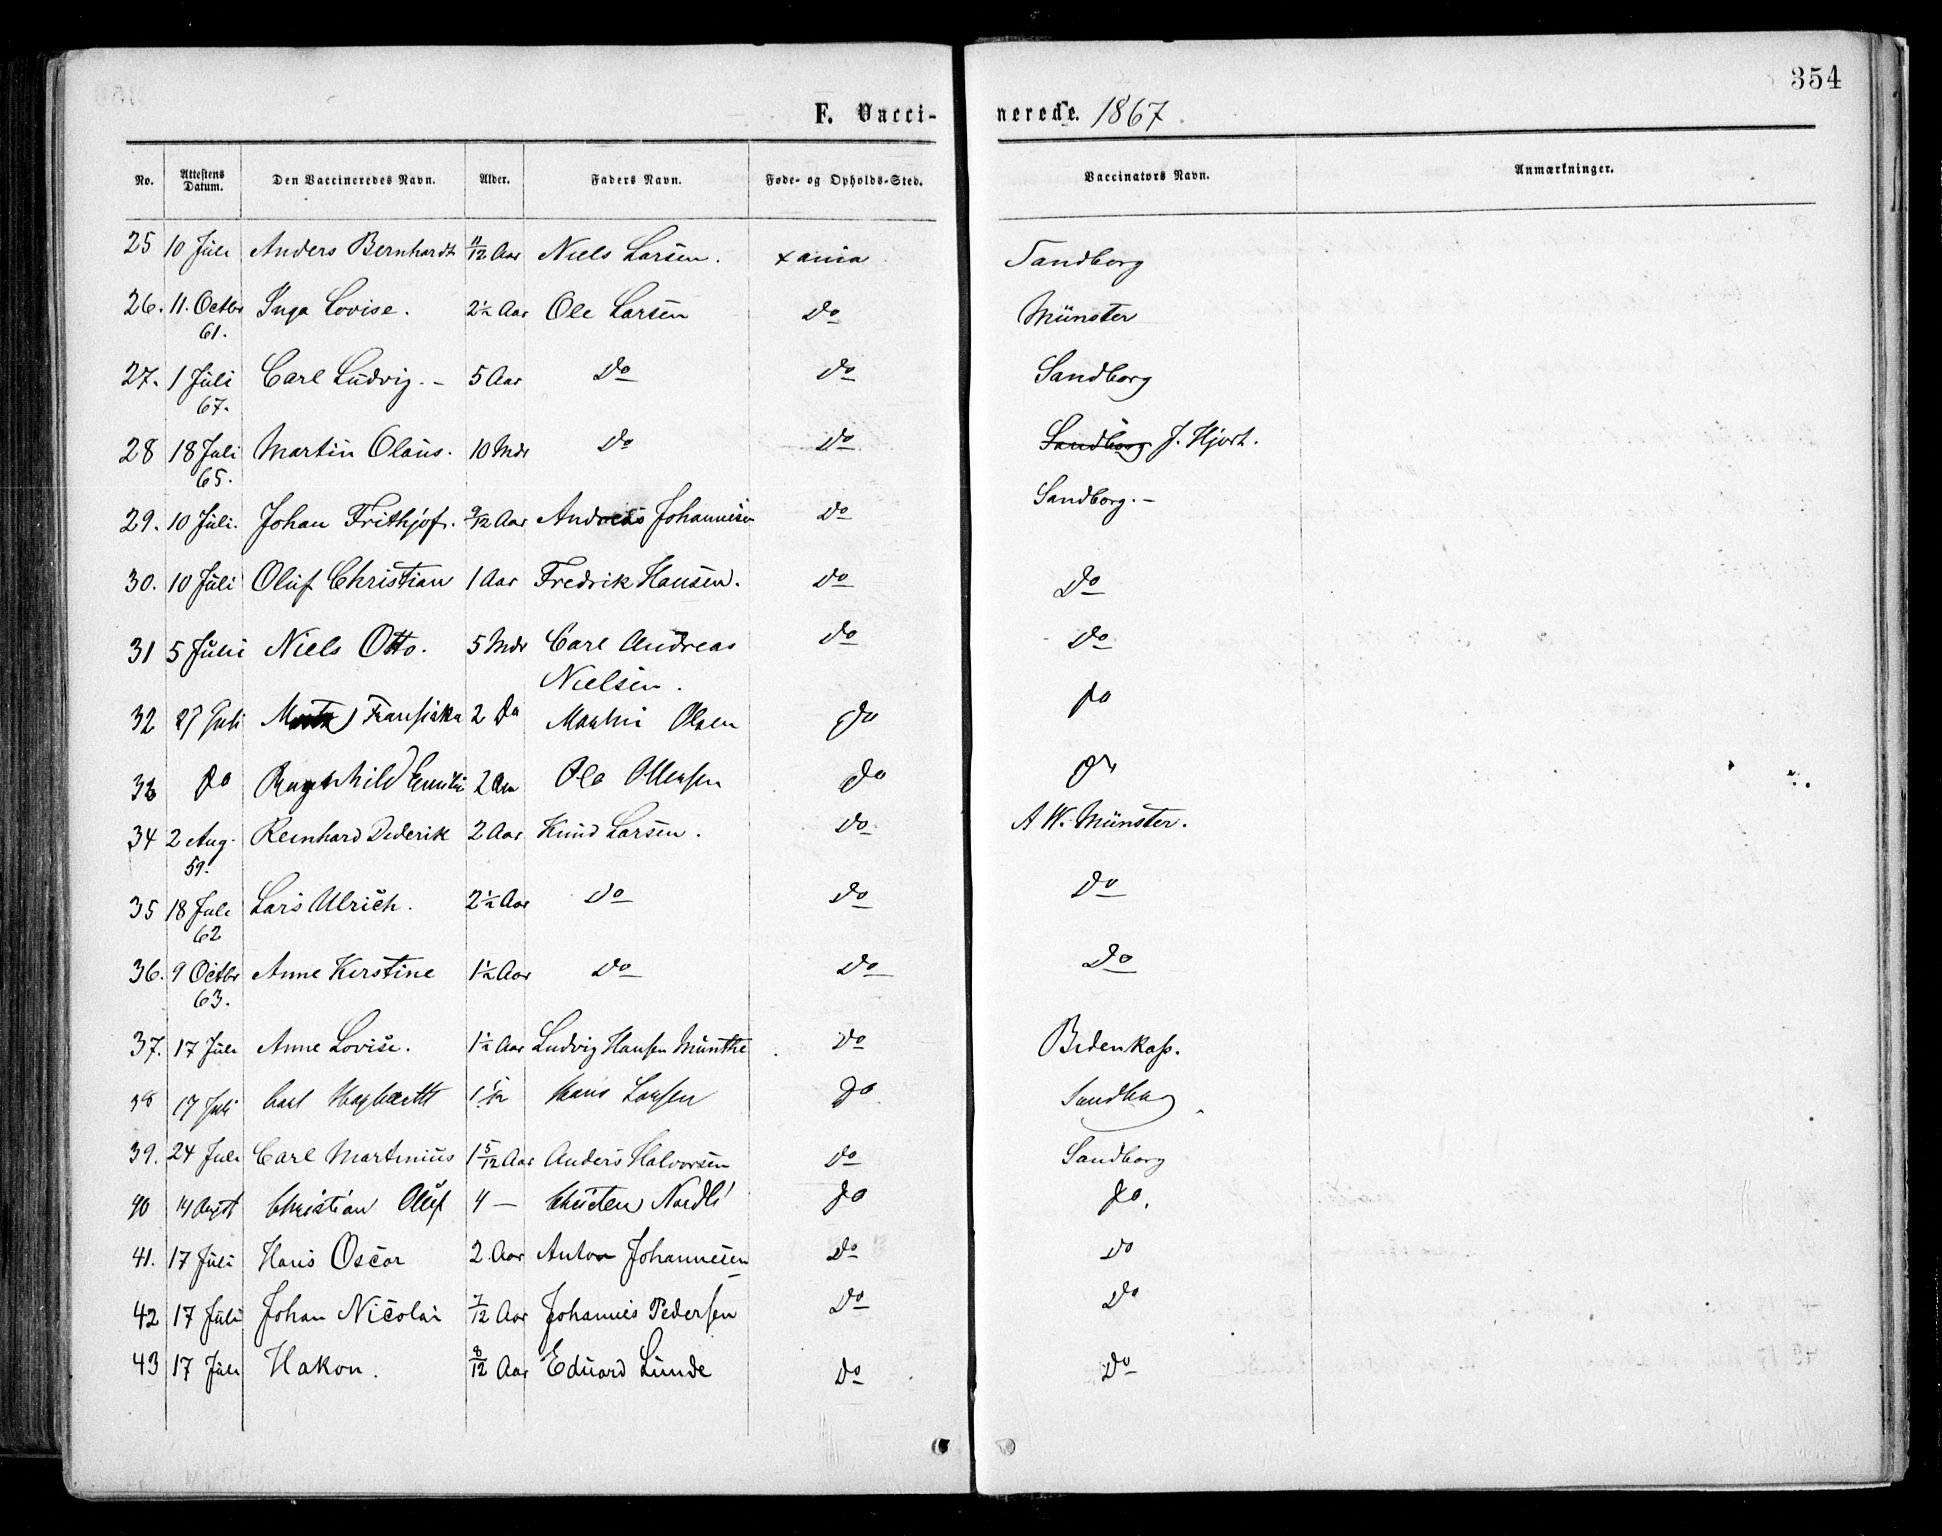 354
F. Vaccinerede. 1867.
No. Attestens Datum. Den Vaccineredes Navn. Alder. Faders Navn. Føde- og Opholds-Sted. Vaccinators Navn. Anmærkninger.
25 10 Juli Anders Bernhardt 11/12 Aar Niels Larsen. xania Sandborg
26. 11. Octbr 61. Inga Lovise. 2½ Aar Ole Larsen Do Münster
27. 1 Juli 67. Carl Ludvig. – 5 Aar Do Do Sandborg
28 18 Juli 65. Martin Olaus. 10 Mdr Do Do Sandborg J. Hjort.
29. 10 Juli. Johan Frithjof. 9/12 Aar Andreas Johannesen Do Sandborg. –
30. 10 Juli Oluf Christian 1 Aar Fredrik Hansen. Do Do
31 5 Juli Niels Otto. 5 Mdr Carl Andreas Nielsen. Do Do
32 27 Juli Fransiska 2 Do Martin Olsen Do Do
33 Do Ragnhild Emilie 2 Aar Ole Do Do
34 2 Aug. 59. Reinhard Diderik 2 Aar Knud Larsen. Do A W. Münster.
35 18 Juli 62 Lars Ulrich. 2½ Aar Do Do Do
36. 9 Octbr 63. Anne Kirstine 1½ Aar Do Do Do
37. 17 Juli Anne Lovise. 1½ Aar Ludvig Hansen Munthe Do Bidenkap.
38 17 Juli Carl Hagbarth 1 1/12 Hans Larsen Do Sandborg
39. 24 Juli Carl Martinius 1 5/12 Aar Anders Halvorsen Do Sandborg
40 14 Augst Christian Oluf 4 – Christen Nordli Do Do.
41. 17 Juli Hans Oscar 2 Aar Anton Johannesen Do Do
42 17 Juli Johan Nicolai 7/12 Aar Johannes Pedersen Do Do
43 17 Juli Hakon. 8/12 Aar Eduard Lunde Do Do